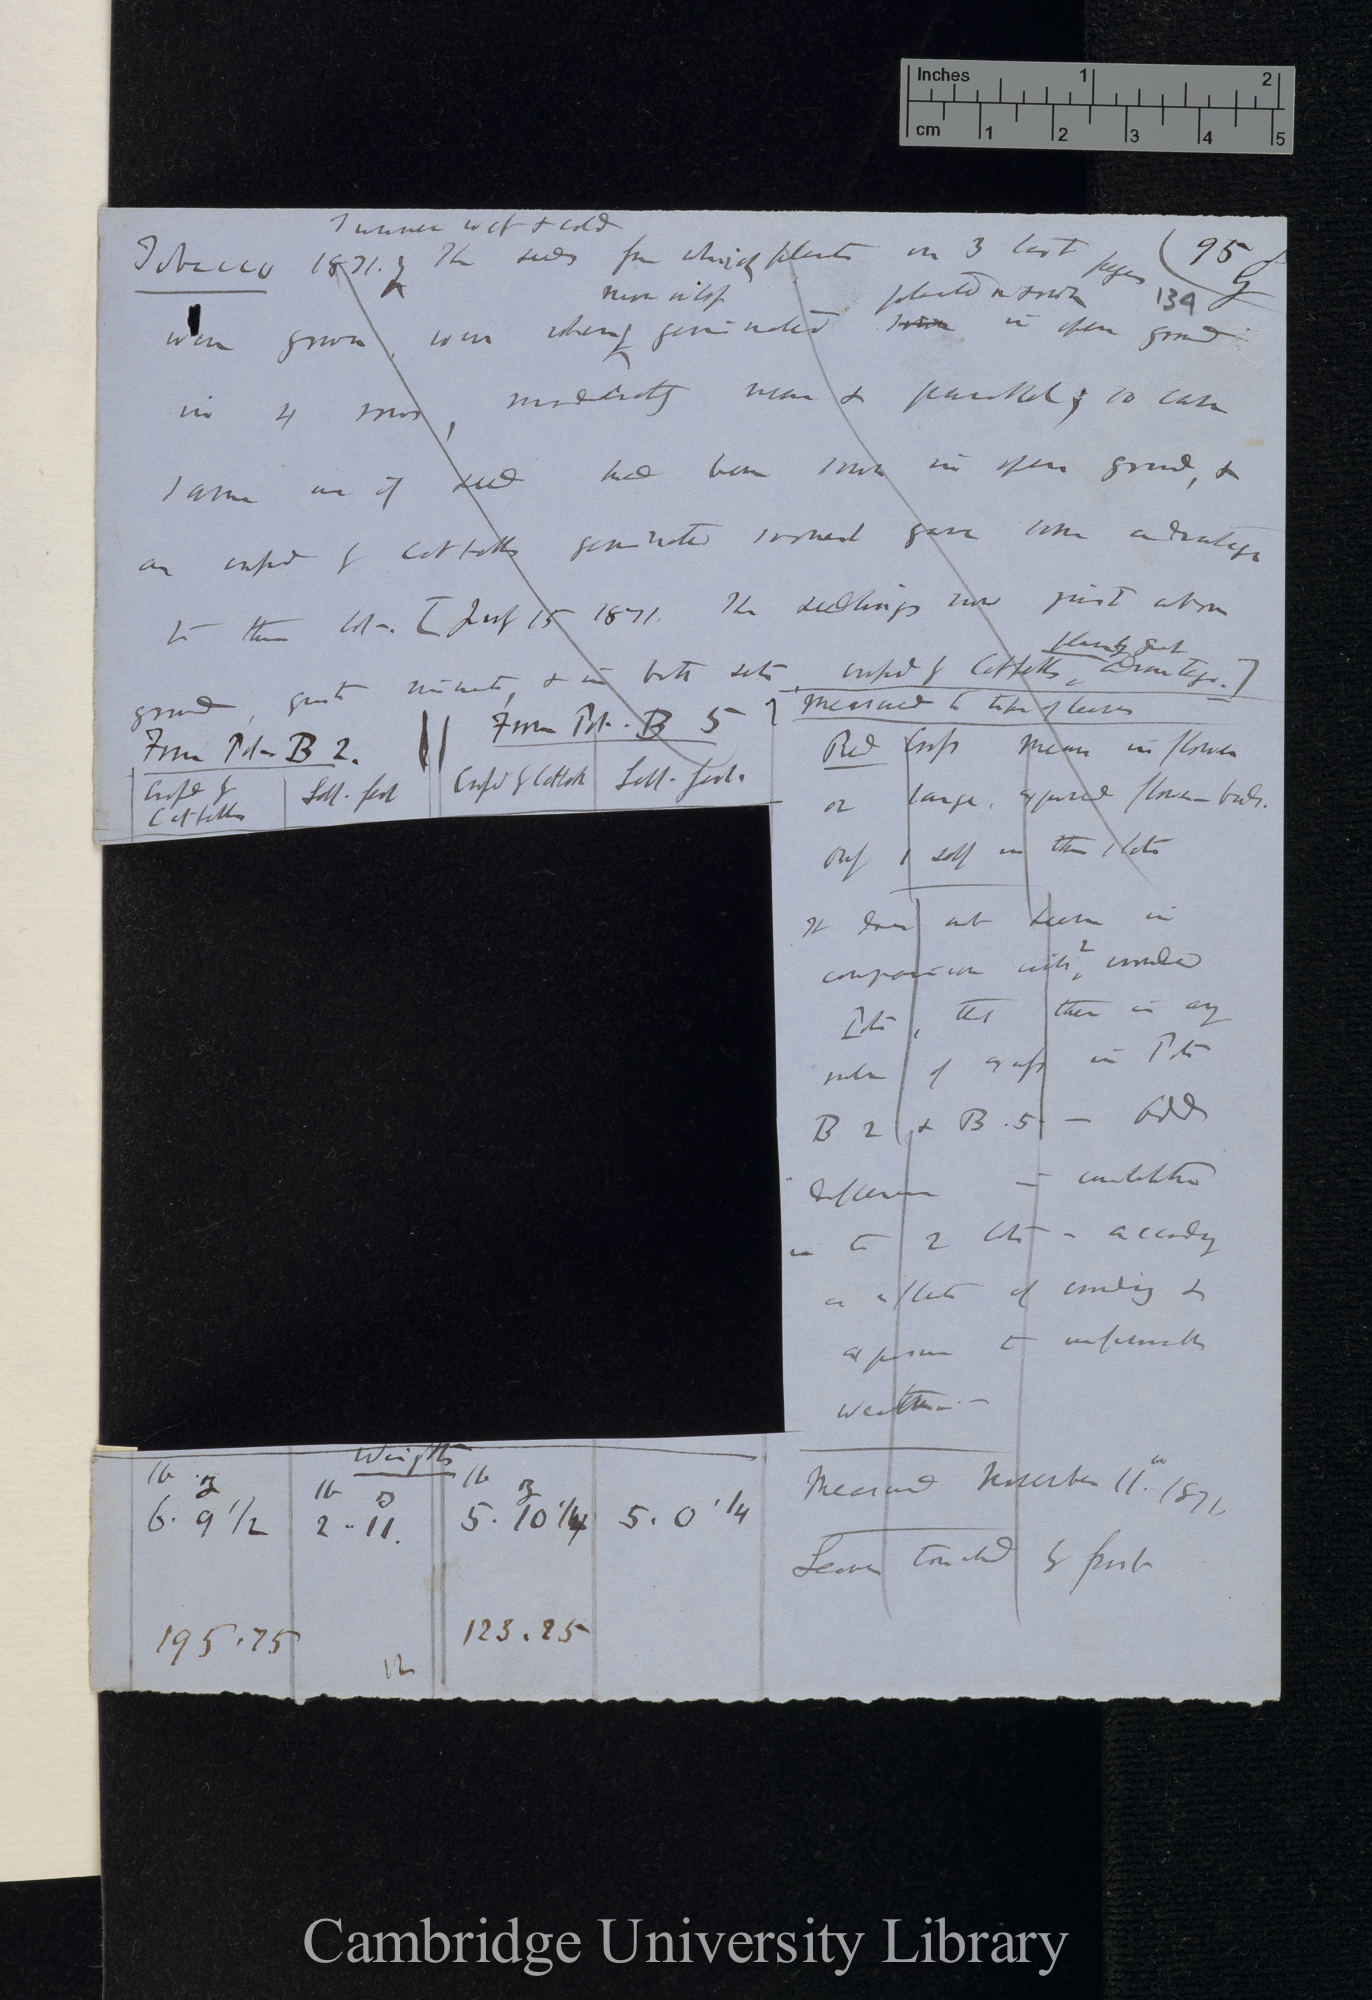 Inches 1 2
cm 1 2 3 4 5
Summer wet & cold
Tobacco 1871. The seeds from which plants on 3 last pages (95
134
were grown, were when germinated sown in open ground
planted or sown
in 4 rows, moderately near & parallel; to each
same as if seed had been sown in open ground, &
as crossed by Cattells germinated soonest gave some advantage
to these lots. [July 15 1871. The seedlings now just above
ground, quite minute, & in both sets, crossed by Cattells, advantage.]
From Pot B 2.
From Pot B 5
Crossed by Cattells
Self-fert
Crossed by Cattell
Self-fert.
Measured to tips of leaves
Red Cross mean in flower
or large, exposed flower-buds.
only 1 self in these lots
It does not seem in
comparison with crowded
Pots, that there is any
in Pots
B 2 & B. 5 — Odd
difference in constitution
in the 2 lots — according
as effects of crowding &
exposure to unfavourable
weather —
Measured November 11th 1871
Leaves touched by frost
Weights
lb oz
lb oz
lb oz
6. 9 1/2
2 - 11.
5. 10 1/4
5. 0 1/4
195.75
123.25
12
Cambridge University Library